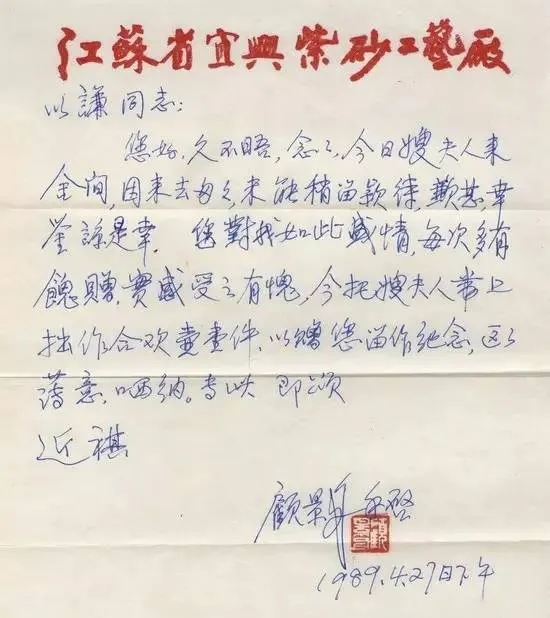 江蘇省宜興紫砂工藝廠
以謙同志:
您好,久不晤,念々,今日嫂夫人来
金间,因来去匆々未能稍留款待,歉甚,幸
鉴諒是幸. 您對我如此盛情,每次多有
餽贈,實感受之有愧,今托嫂夫人带上
拙作合欢壶壹件,以贈您留作纪念,区々
薄意,哂纳。专此 即颂
近祺
顧景舟 手啓
1989.4.27日下午